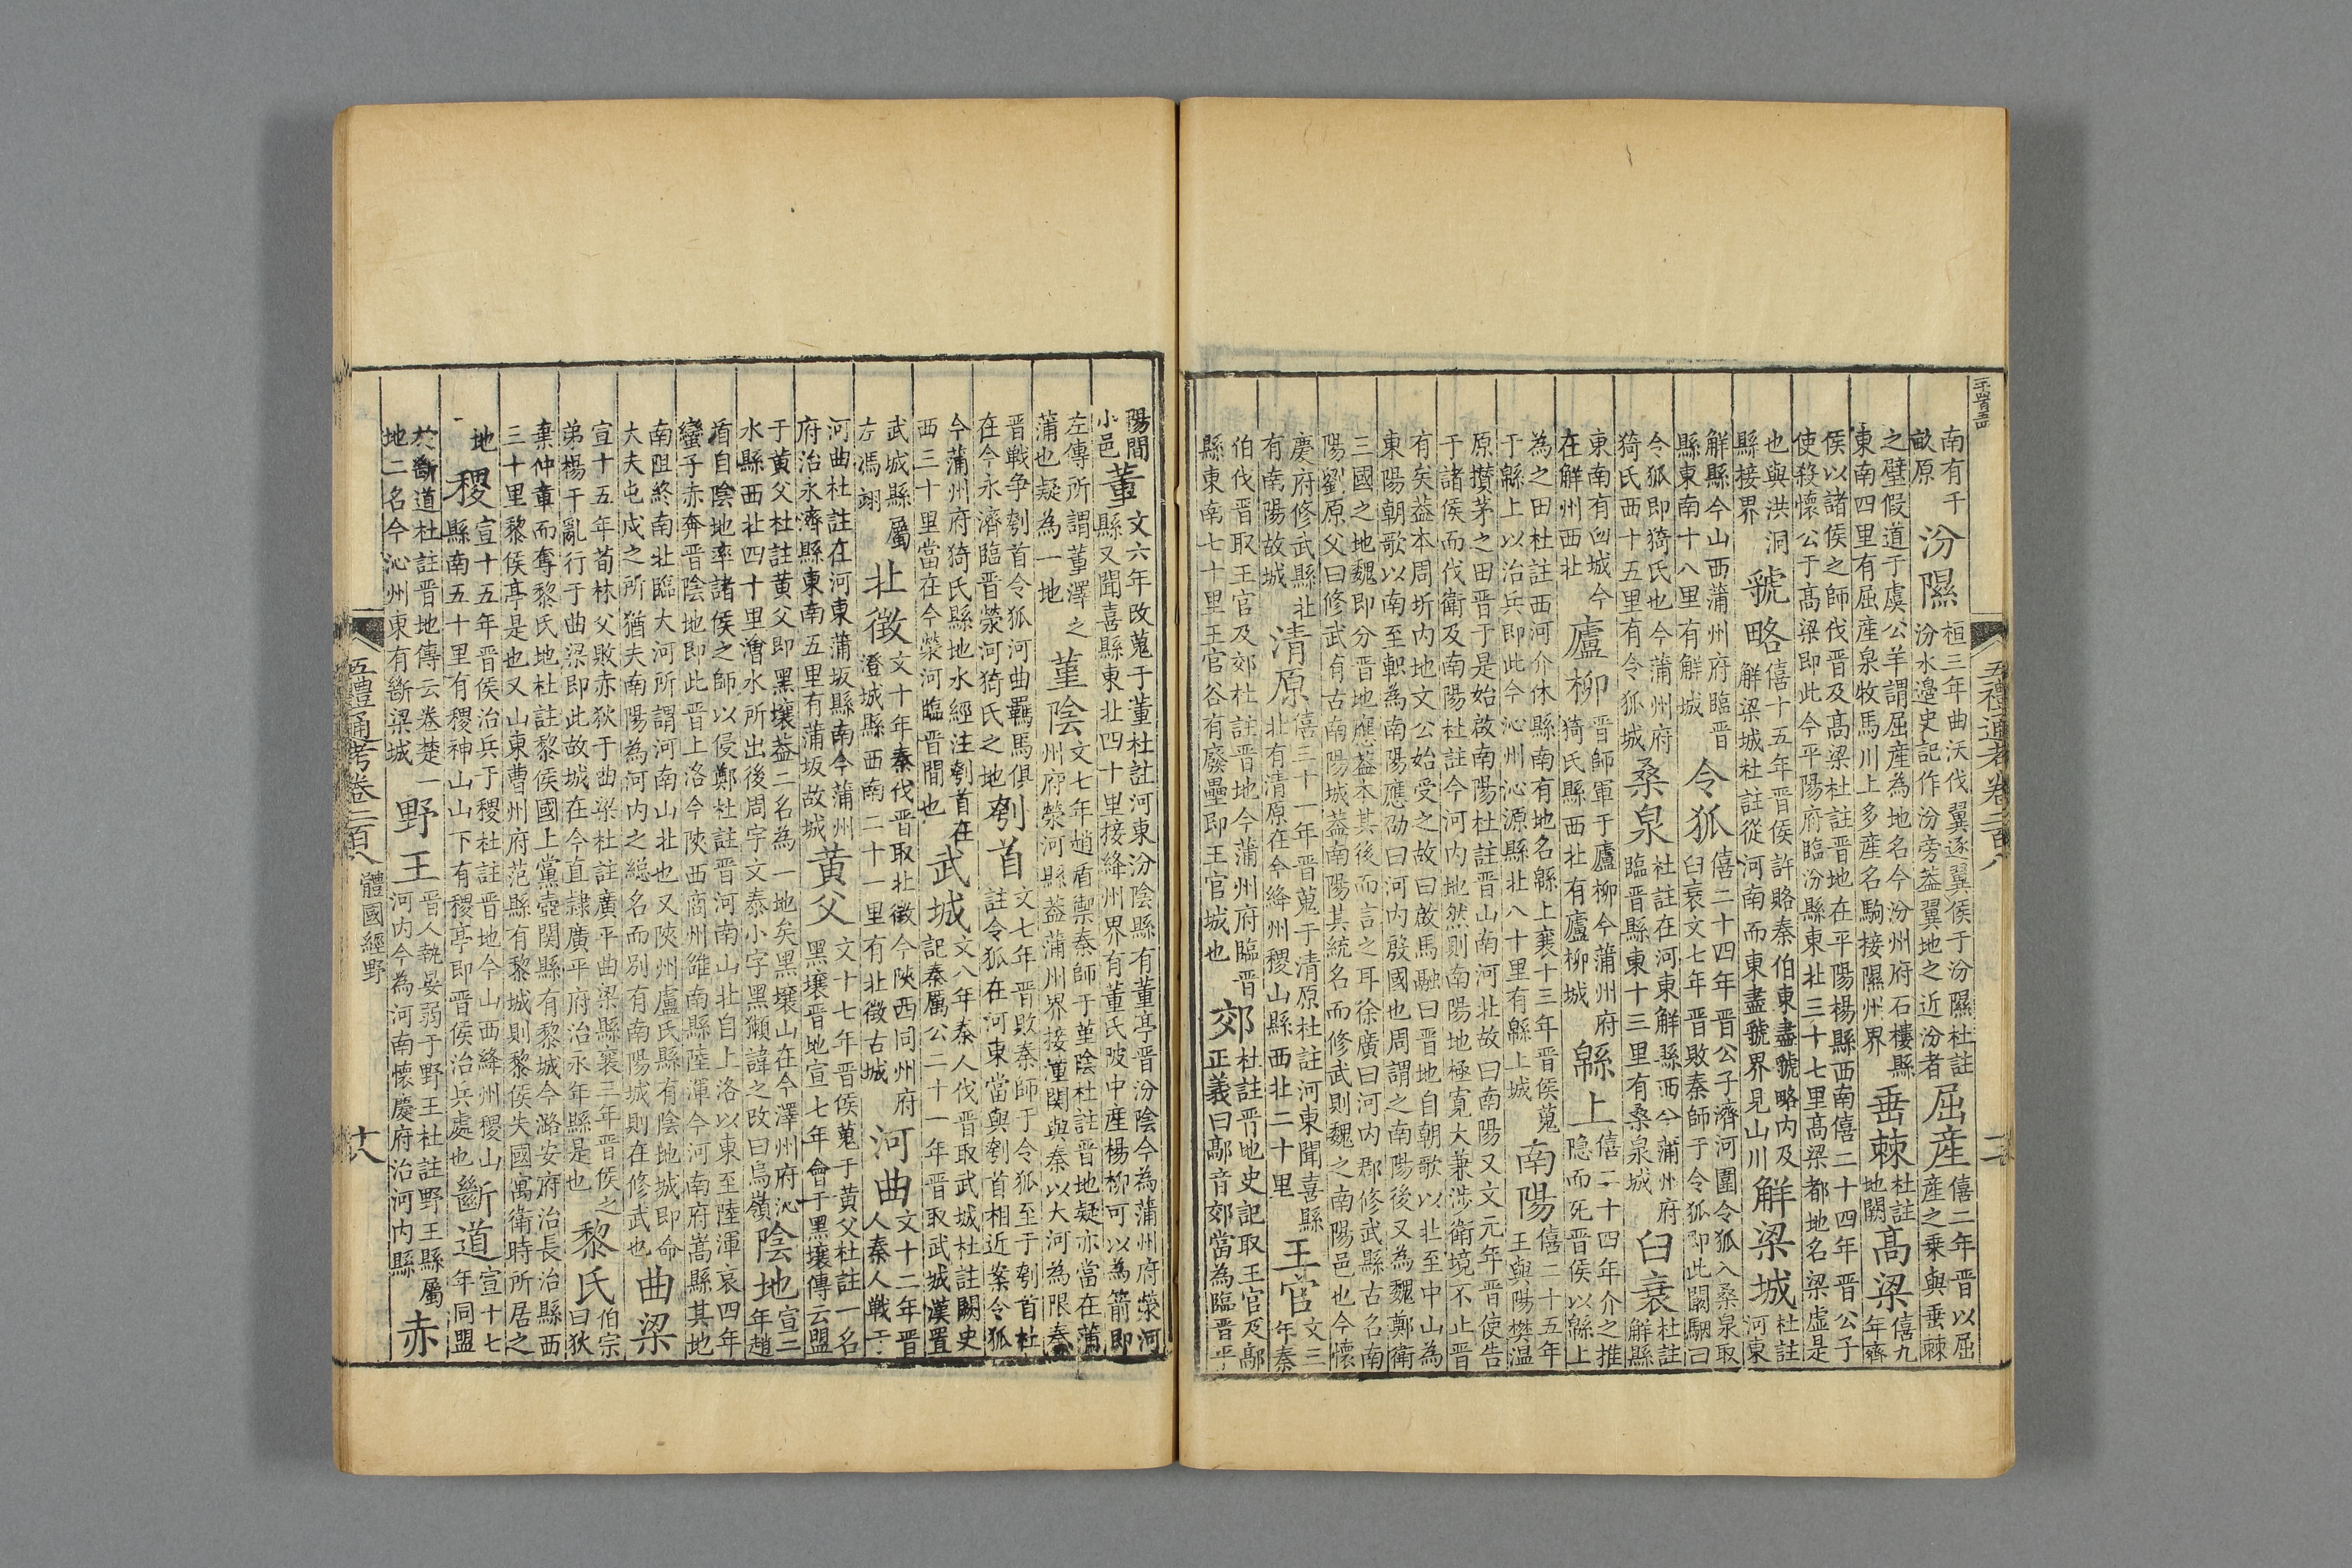 五禮通考卷二百八
南有千畝原汾隰桓三年曲沃伐翼逐翼侯于汾隰杜註汾水邊史記作汾旁葢翼地之近汾者屈產僖二年晉以屈產之乘與垂棘
之璧假道于虞公羊謂屈產為地名今汾州府石樓縣東南四里有屈產泉牧馬川上多產名駒接隰州界垂棘杜註地闕高梁僖九年齊
侯以諸侯之師伐晉及高梁杜註晉地在平陽楊縣西南僖二十四年晉公子使殺懷公于高梁即此今平陽府臨汾縣東北三十七里高梁都地名梁虛是
也與洪洞縣接界虢略僖十五年晉侯許賂秦伯東盡虢略内及解梁城杜註從河南而東盡虢界見山川解梁城杜註河東
解縣今山西蒲州府臨晉縣東南十八里有解城令狐僖二十四年晉公子濟河圍令狐入桑泉取臼衰文七年晉敗秦師于令狐即此闞駰曰
令狐即猗氏也今蒲州府猗氏西十五里有令狐城桑泉杜註在河東解縣西今蒲州府臨晉縣東十三里有桑泉城臼衰杜註解縣
東南有臼城今在解州西北廬柳晉師軍于廬柳今蒲州府猗氏縣西北有廬柳城緜上僖二十四年介之推隱而死晉侯以緜上
為之田杜註西河介休縣南有地名緜上襄十三年晉侯蒐于緜上以治兵即此今沁州沁源縣北八十里有緜上城南陽僖二十五年王與陽樊温
原攢茅之田晉于是始啟南陽杜註晉山南河北故曰南陽又文元年晉使告于諸侯而伐衛及南陽杜註今河内地然則南陽地極寬大兼涉衛境不止晉
有矣葢本周圻内地文公始受之故曰啟馬融曰晉地自朝歌以北至中山為東陽朝歌以南至軹為南陽應劭曰河内殷國也周謂之南陽後又為魏鄭衛
三國之地魏即分晉地應葢本其後而言之耳徐廣曰河内郡修武縣古名南陽劉原父曰修武有古南陽城葢南陽其統名而修武則魏之南陽邑也今懷
慶府修武縣北有南陽故城清原僖三十一年晉蒐于清原杜註河東聞喜縣北有清原在今絳州稷山縣西北二十里王官文三年秦
伯伐晉取王官及郊杜註晉地今蒲州府臨晉縣東南七十里王官谷有廢壘即王官城也郊杜註晉地史記取王官及鄗正義曰鄗音郊當為臨晉平
陽間小邑董文六年改蒐于董杜註河東汾陰縣有董亭晉汾陰今為蒲州府滎河縣又聞喜縣東北四十里接絳州界有董氏陂中產楊柳可以為箭即
左傳所謂董澤之蒲也疑為一地堇陰文七年趙盾禦秦師于堇陰杜註晉地疑亦當在蒲州府滎河縣葢蒲州界接潼関與秦以大河為限秦
晉戰争刳首令狐河曲羈馬俱在今永濟臨晉滎河猗氏之地刳首文七年晉敗秦師于令狐至于刳首杜註令狐在河東當與刳首相近案令狐
今蒲州府猗氏縣地水經注刳首在西三十里當在今滎河臨晉間也武城文八年秦人伐晉取武城杜註闕史記秦厲公二十一年晉取武城漢置
武城縣屬左馮翊北徵文十年秦伐晉取北徵今陜西同州府澄城縣西南二十一里有北徵古城河曲文十二年晉人秦人戰于
河曲杜註在河東蒲坂縣南今蒲州府治永濟縣東南五里有蒲坂故城黄父文十七年晉侯蒐于黄父杜註一名黑壤晉地宣七年會于黑壤傳云盟
于黄父杜註黄父即黑壤葢二名為一地矣黑壤山在今澤州府沁水縣西北四十里澮水所出後周宇文泰小字黑獺諱之改曰烏嶺陰地宣二年趙
盾自陰地率諸侯之師以侵鄭杜註晉河南山北自上洛以東至陸渾哀四年蠻子赤奔晉陰地即此晉上洛今陜西商州雒南縣陸渾今河南府嵩縣其地
南阻終南北臨大河所謂河南山北也又陜州盧氏縣有陰地城即命大夫屯戍之所猶夫南陽為河内之總名而別有南陽城則在修武也曲梁
宣十五年荀林父敗赤狄于曲梁杜註廣平曲梁縣襄三年晉侯之弟楊干亂行于曲梁即此故城在今直隷廣平府治永年縣是也黎氏伯宗曰狄
棄仲章而奪黎氏地杜註黎侯國上黨壺関縣有黎城今潞安府治長治縣西三十里黎侯亭是也又山東曹州府范縣有黎城則黎侯失國寓衛時所居之
地稷宣十五年晉侯治兵于稷杜註晉地今山西絳州稷山縣南五十里有稷神山山下有稷亭即晉侯治兵處也斷道宣十七年同盟
於斷道杜註晉地傳云卷楚一地二名今沁州東有斷梁城野王晉人執晏弱于野王杜註野王縣屬河内今為河南懷慶府治河内縣赤
五禮通考卷二百八
體國經野
十八